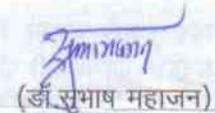 (डॉ.सुभाष महाजन)